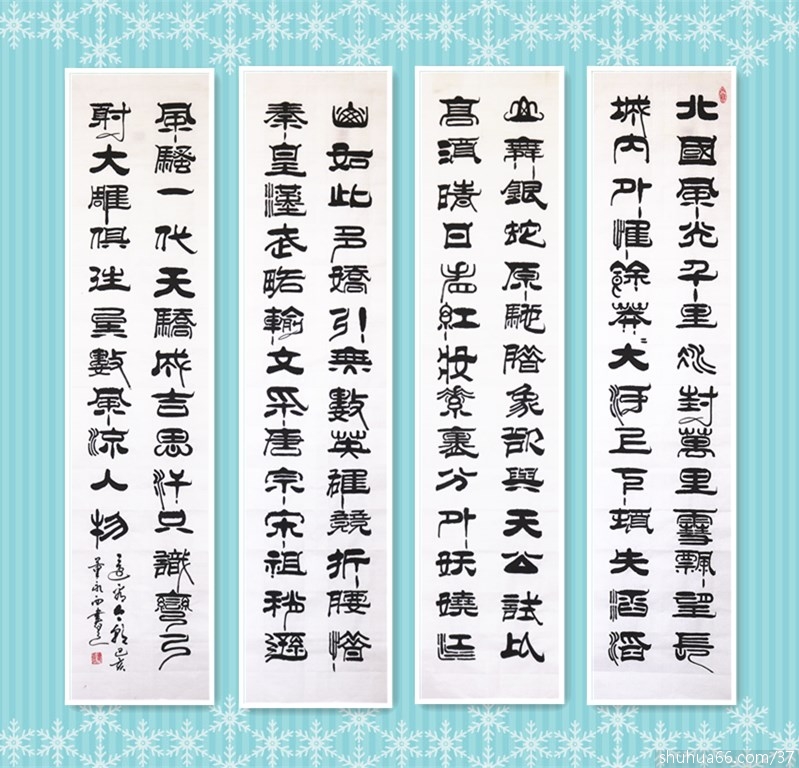 北國風光千里冰封萬里雪飄望長
城內外惟餘莽〻大河上下頓失滔滔
山舞銀蛇原馳臘象欲與天公試比
高須晴日看紅妝素裹分外妖嬈江
山如此多嬌引無數英雄競折腰惜
秦皇漢武略輸文采唐宗宋祖稍遜
風騷一代天驕成吉思汗只識彎弓
射大雕俱往矣數風流人物
還看今朝己亥
shuhua66.com/37